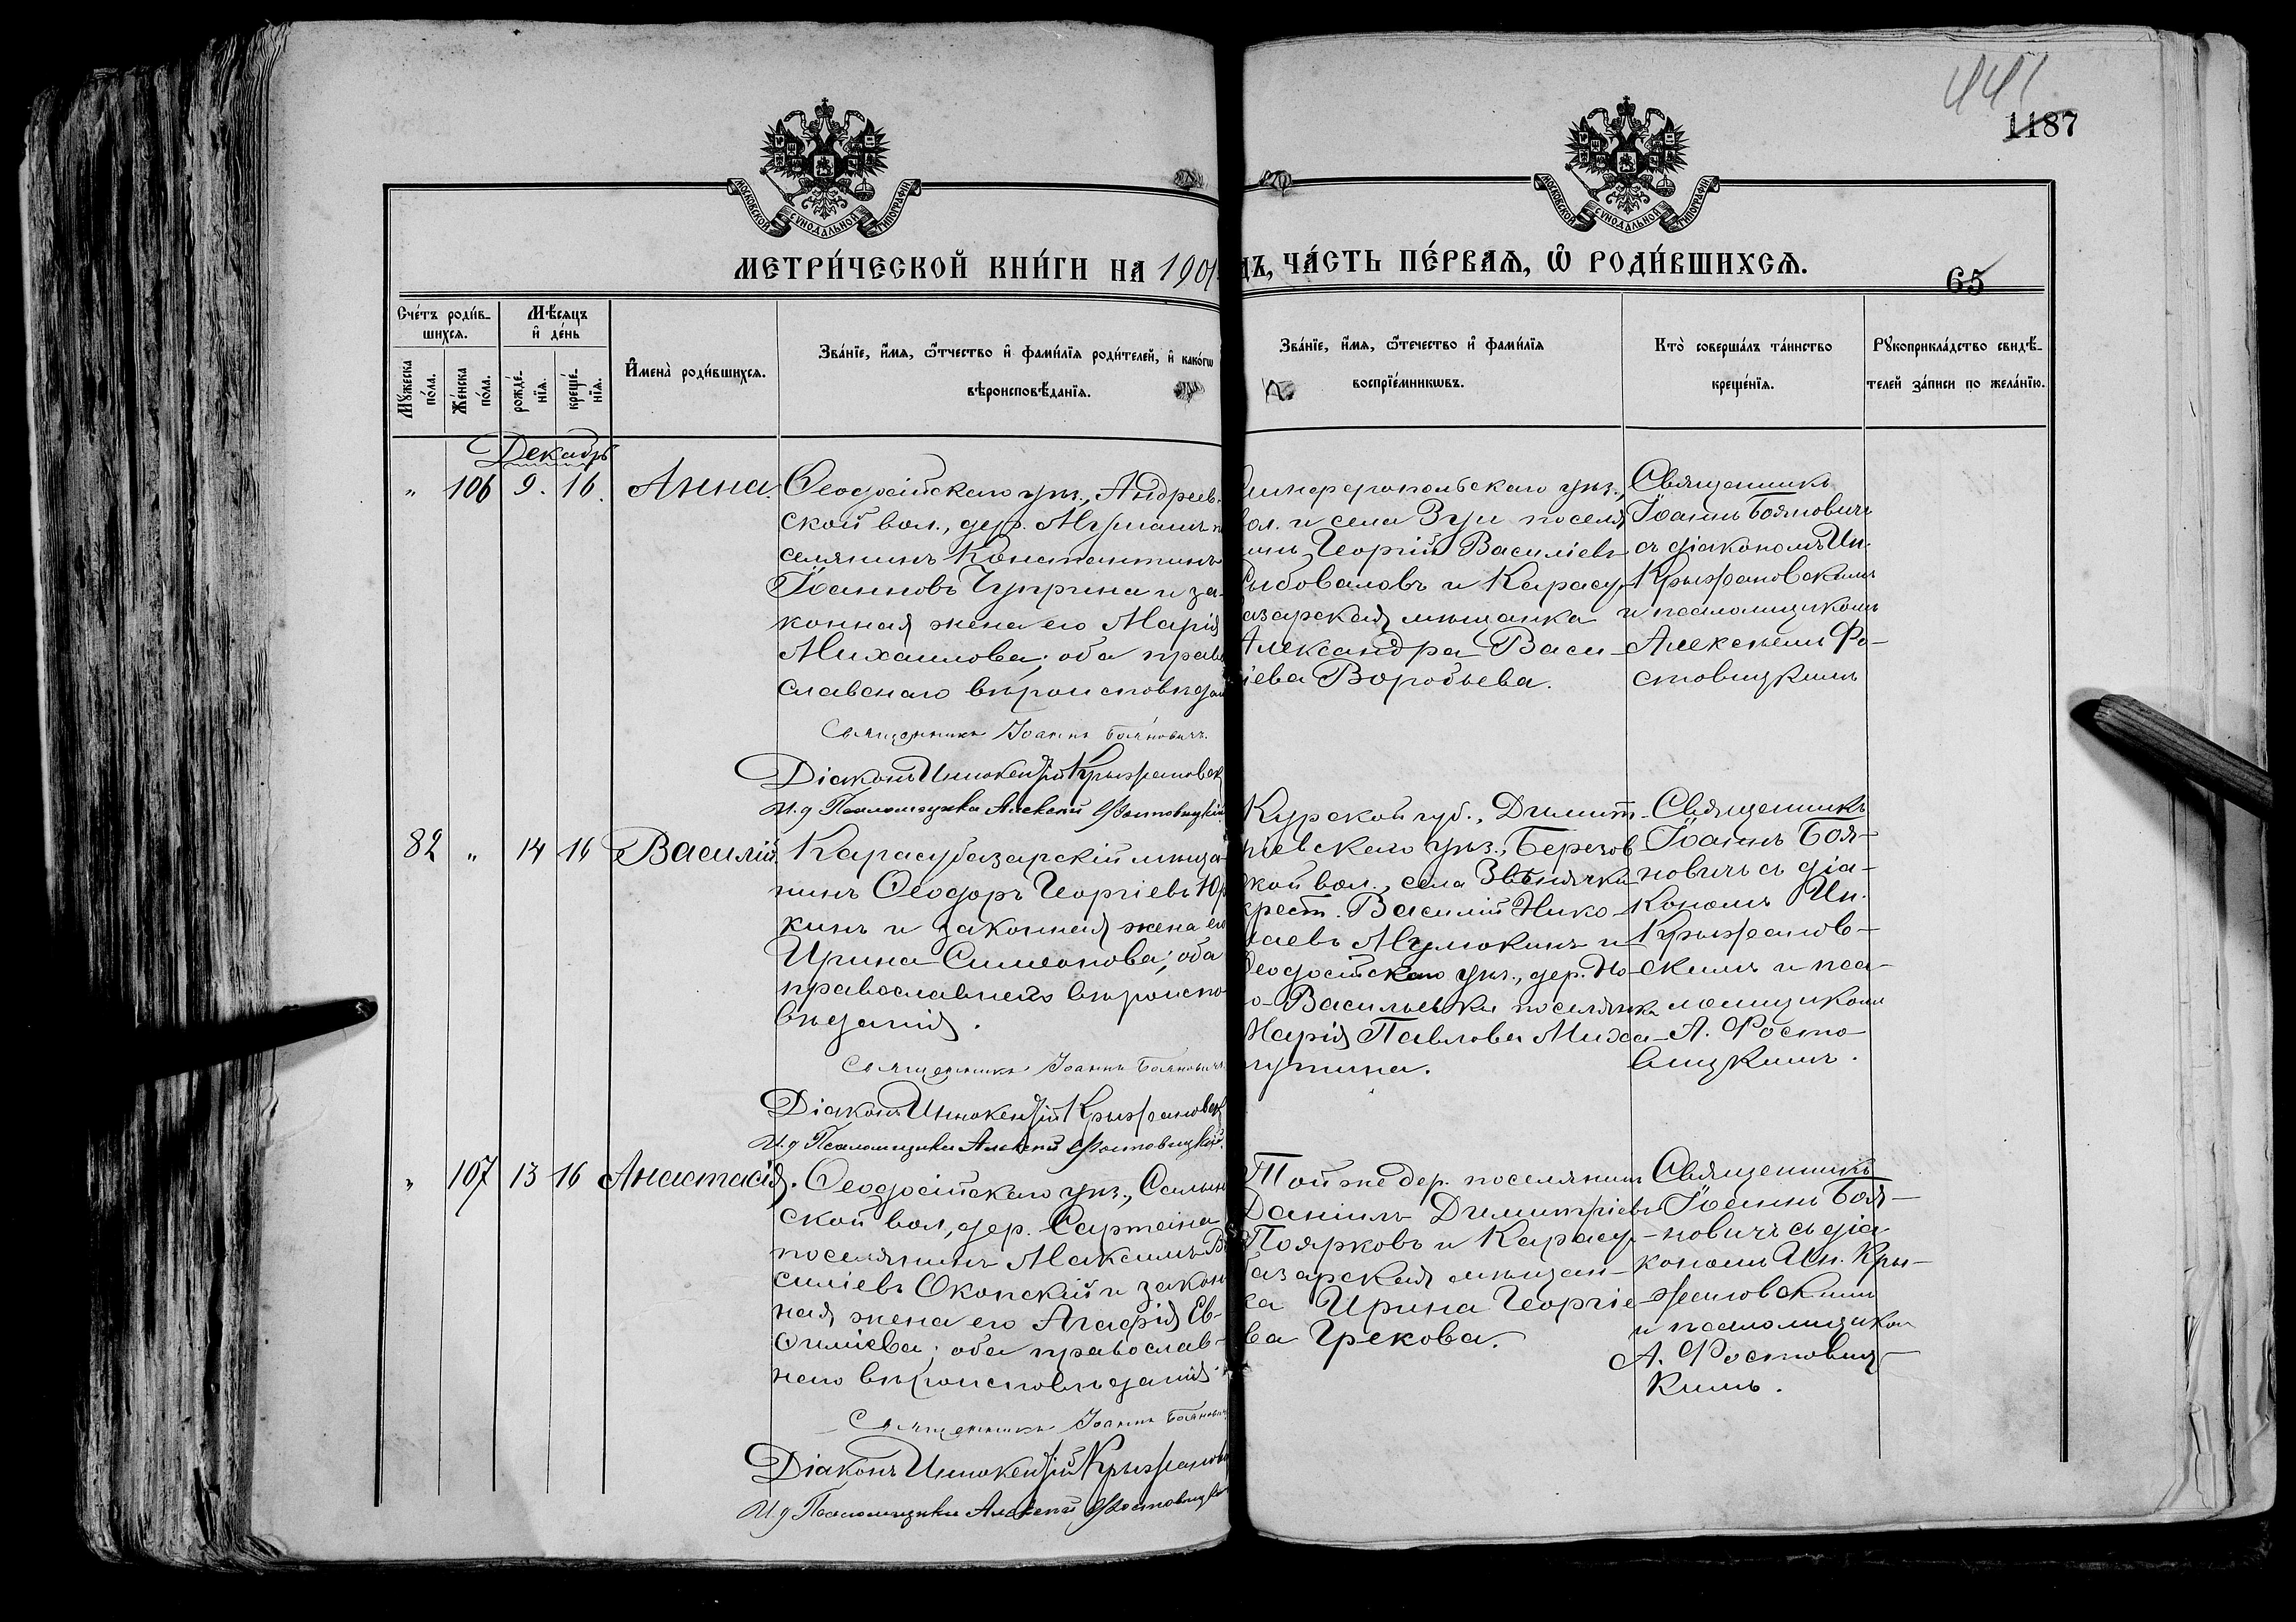 441
1187
МОСКОВСКОЙ СУНОДАЛЬНОЙ ТИПОГРАФІИ
МОСКОВСКОЙ СУНОДАЛЬНОЙ ТИПОГРАФІИ
МЕТРИ́ЧЕСКОЙ КНИ́ГИ НА 190
ДЪ, ЧА́СТЬ ПЕ́РВАѦ, Ѡ҆ РОДИ́ВШИХСѦ.
65
Сче́тъ роди́в-
шихсѧ.
Мѣ́сѧцъ
и҆ де́нь
Мꙋ́жеска
по́ла.
Же́нска
по́ла.
рожде́-
нїѧ.
креще́-
нїѧ.
И҆мена̀ роди́вшихсѧ.
Зва́нїе, и҆́мѧ, ѻ҆́тчество и҆ фами́лїѧ роди́телей, и҆ како́гѡ
вѣроисповѣ́данїѧ.
Зва́нїе, и҆́мѧ, ѻ҆́течество и҆ фами́лїѧ
воспрїе́мникѡвъ.
Кто̀ соверша́лъ та́инство
креще́нїѧ.
Рꙋкоприкла́дство свидѣ́-
телей за́писи по жела́нїю.
Декабрь
" 106 9. 16. Анна.
Ѳеодосійскаго уѣз., Андреев-
ской вол., дер.
селянинъ Константинъ
Іоанновъ Чуприна и за-
конная жена его Марія
Михаилова; оба право
славнаго вѣроисповѣдан
Священникъ Іоаннъ Бояновичъ.
Діаконъ Иннокентій Крыжановск
И. д. Псаломщика Алексѣй Ростовицкій
имферопольскаго уѣз.,
вол. и села Зуи поселя
инъ Георгій Василіевъ
Рыбоваловъ и Карасу-
азарская мѣщанка
Александра Васи-
ліева Воробьева.
Священникъ
Іоаннъ Бояновичъ
съ діакономъ Ин.
Крыжановскимъ
и псаломщикомъ
Алексѣемъ Ро-
стовицкимъ
82 " 14 16 Василій
Карасубазарскій мѣща-
нинъ Ѳеодоръ Георгіевъ Юр
кинъ и законная жена его
Ирина Симеонова; оба
православнаго вѣроиспо-
вѣданія.
Священникъ Іоаннъ Бояновичъ.
Діаконъ Иннокентій Крыжановск
И. д. Псаломщика Алексѣй Ростовицкій.
Курской губ., Димит-
ріевскаго уѣз., Березов
кой вол., села Звенячки
крест. Василій Нико-
лаевъ Мулюкинъ и
Ѳеодосійскаго уѣз., дер. Но-
о-Васильевки поселянка
Марія Павлова Миха-
гутина.
Священникъ
Іоаннъ Боя-
новичъ съ діа-
кономъ Ин.
Крыжанов-
скимъ и пса-
ломщикомъ
А. Росто-
вицкимъ.
" 107 13 16 Анастасія.
Ѳеодосійскаго уѣз., Салын
ской вол., дер. Сартана
поселянинъ Максимъ Ва
силіевъ Окопский и закон
ная жена его Агафія Ев-
ѳиміева; оба православ-
наго вѣроисповѣданія.
Священникъ Іоаннъ Бояновичъ
Діаконъ Иннокентій Крыжановск
И. д. Псаломщика Алексѣй Ростовицкій
Той же дер. поселянинъ
Даніилъ Димитріевъ
Поярковъ и Карасу-
базарская мѣщан-
ка Ирина Георгіе-
ва Грекова.
Священникъ
Іоаннъ Боя-
новичъ съ діа-
кономъ Ин. Кры-
жановскимъ
и псаломщиком
А. Ростовиц-
кимъ.